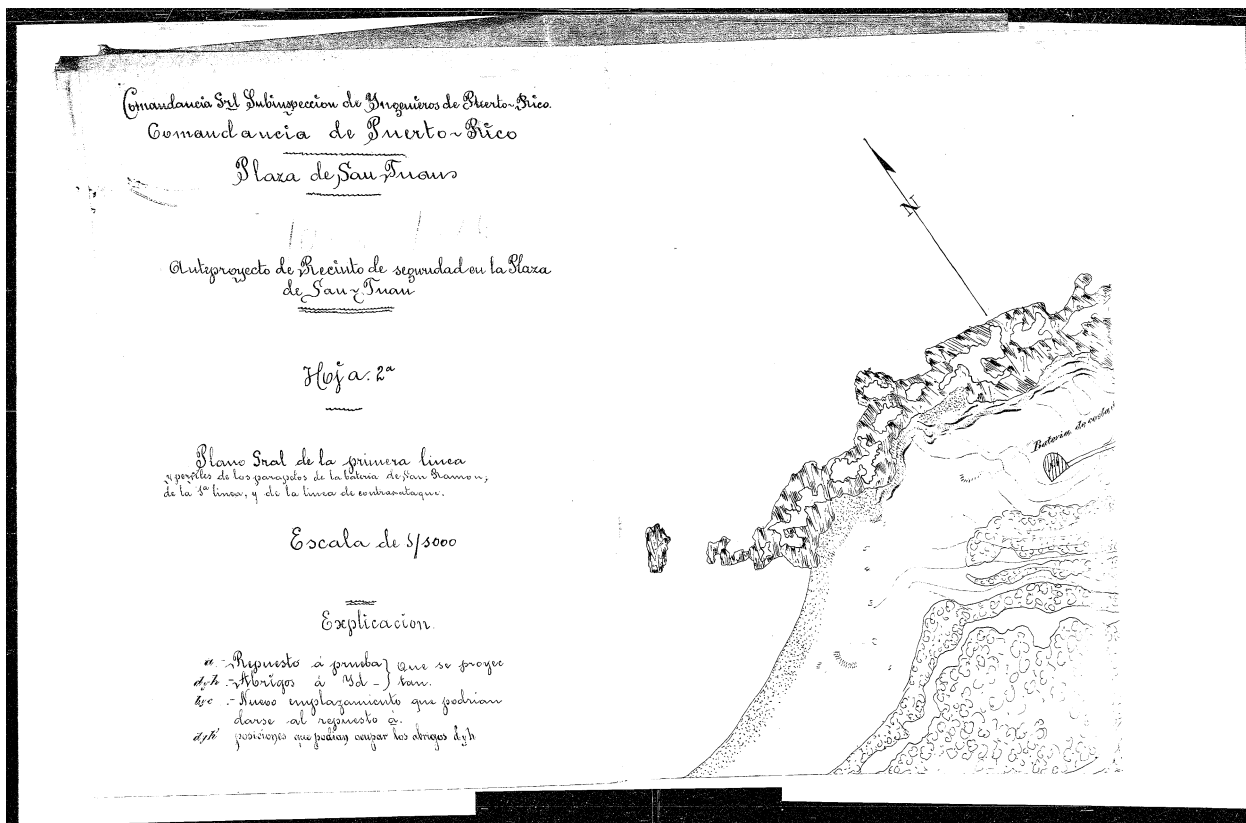 Comandancia Grl Subinspeccion de Yngenieros de Puerto-Rico.
Comandancia de Puerto-Rico
Plaza de San Juan
Anteproyecto de Recinto de seguridad en la Plaza
de San Juan
Hoja. 2ª
Plano Gral de la primera linea
y perfiles de los parapetos de la bateria de San Ramon,
de la 1ª linea, y de la linea de contra-ataque.
Escala de 1/1000
Explicacion.
a - Repuesto á prueba } Que se proyec
d y h - Abrigos á Yd - } tan.
b y c - Nuevo emplazamiento que podrian
darse al repuesto á.
d' y h' posiciones que podian ocupar los abrigos d y h
N
Bateria de costa